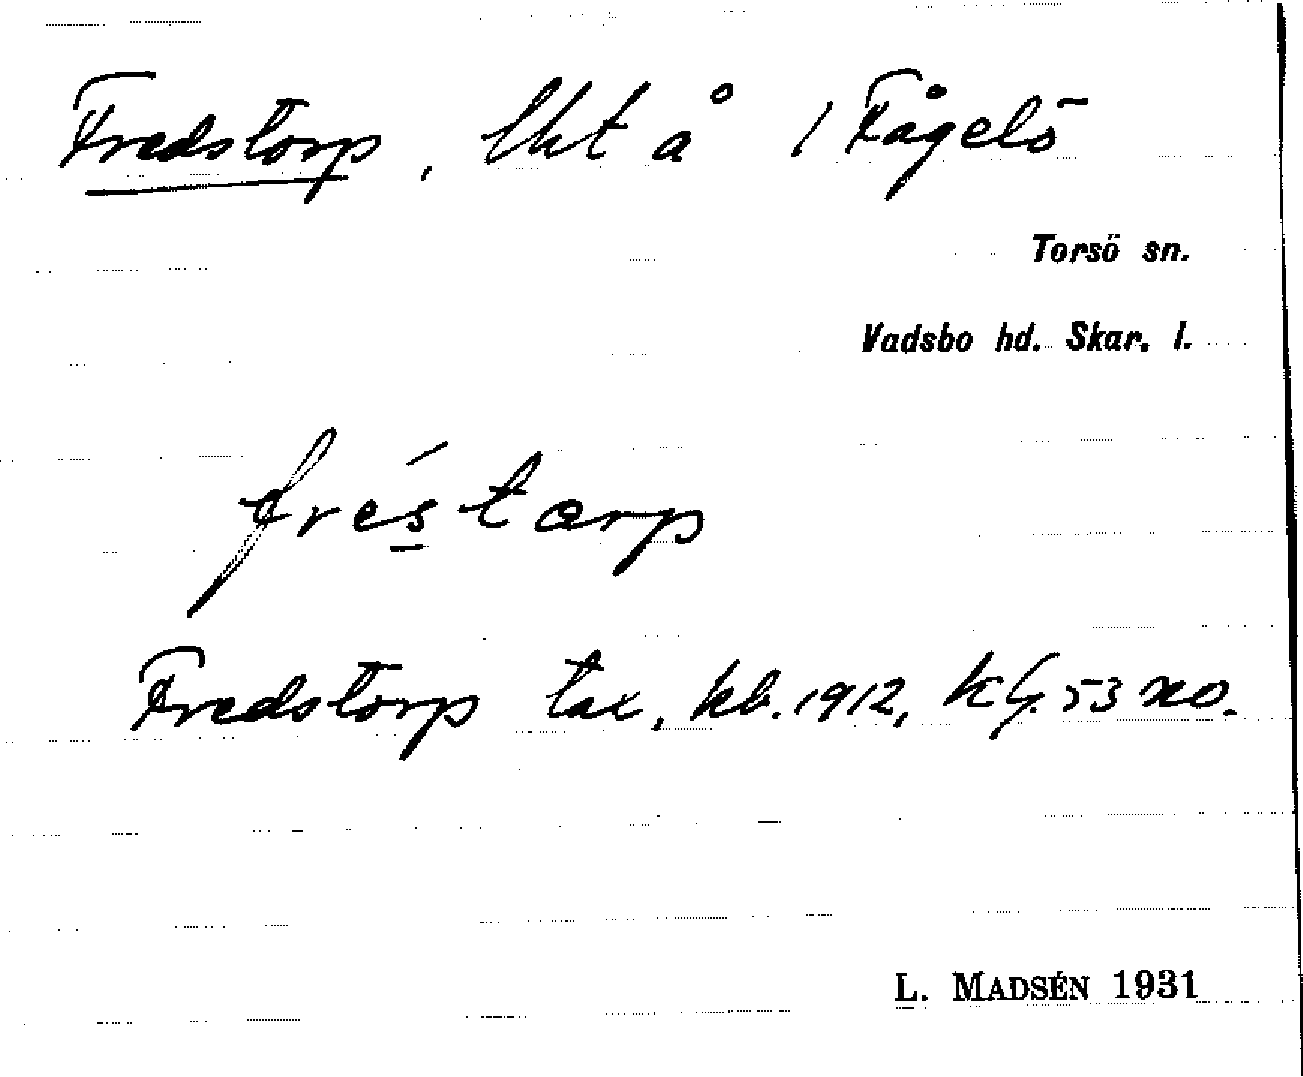 Fredstorp, lht å 1 Fågelö
Torsö sn.
Vadsbo hd. Skar. l.
fréstarp
Fredstorp tax, kb. 1912, kG. 53 no.
L. MADSÉN 1931